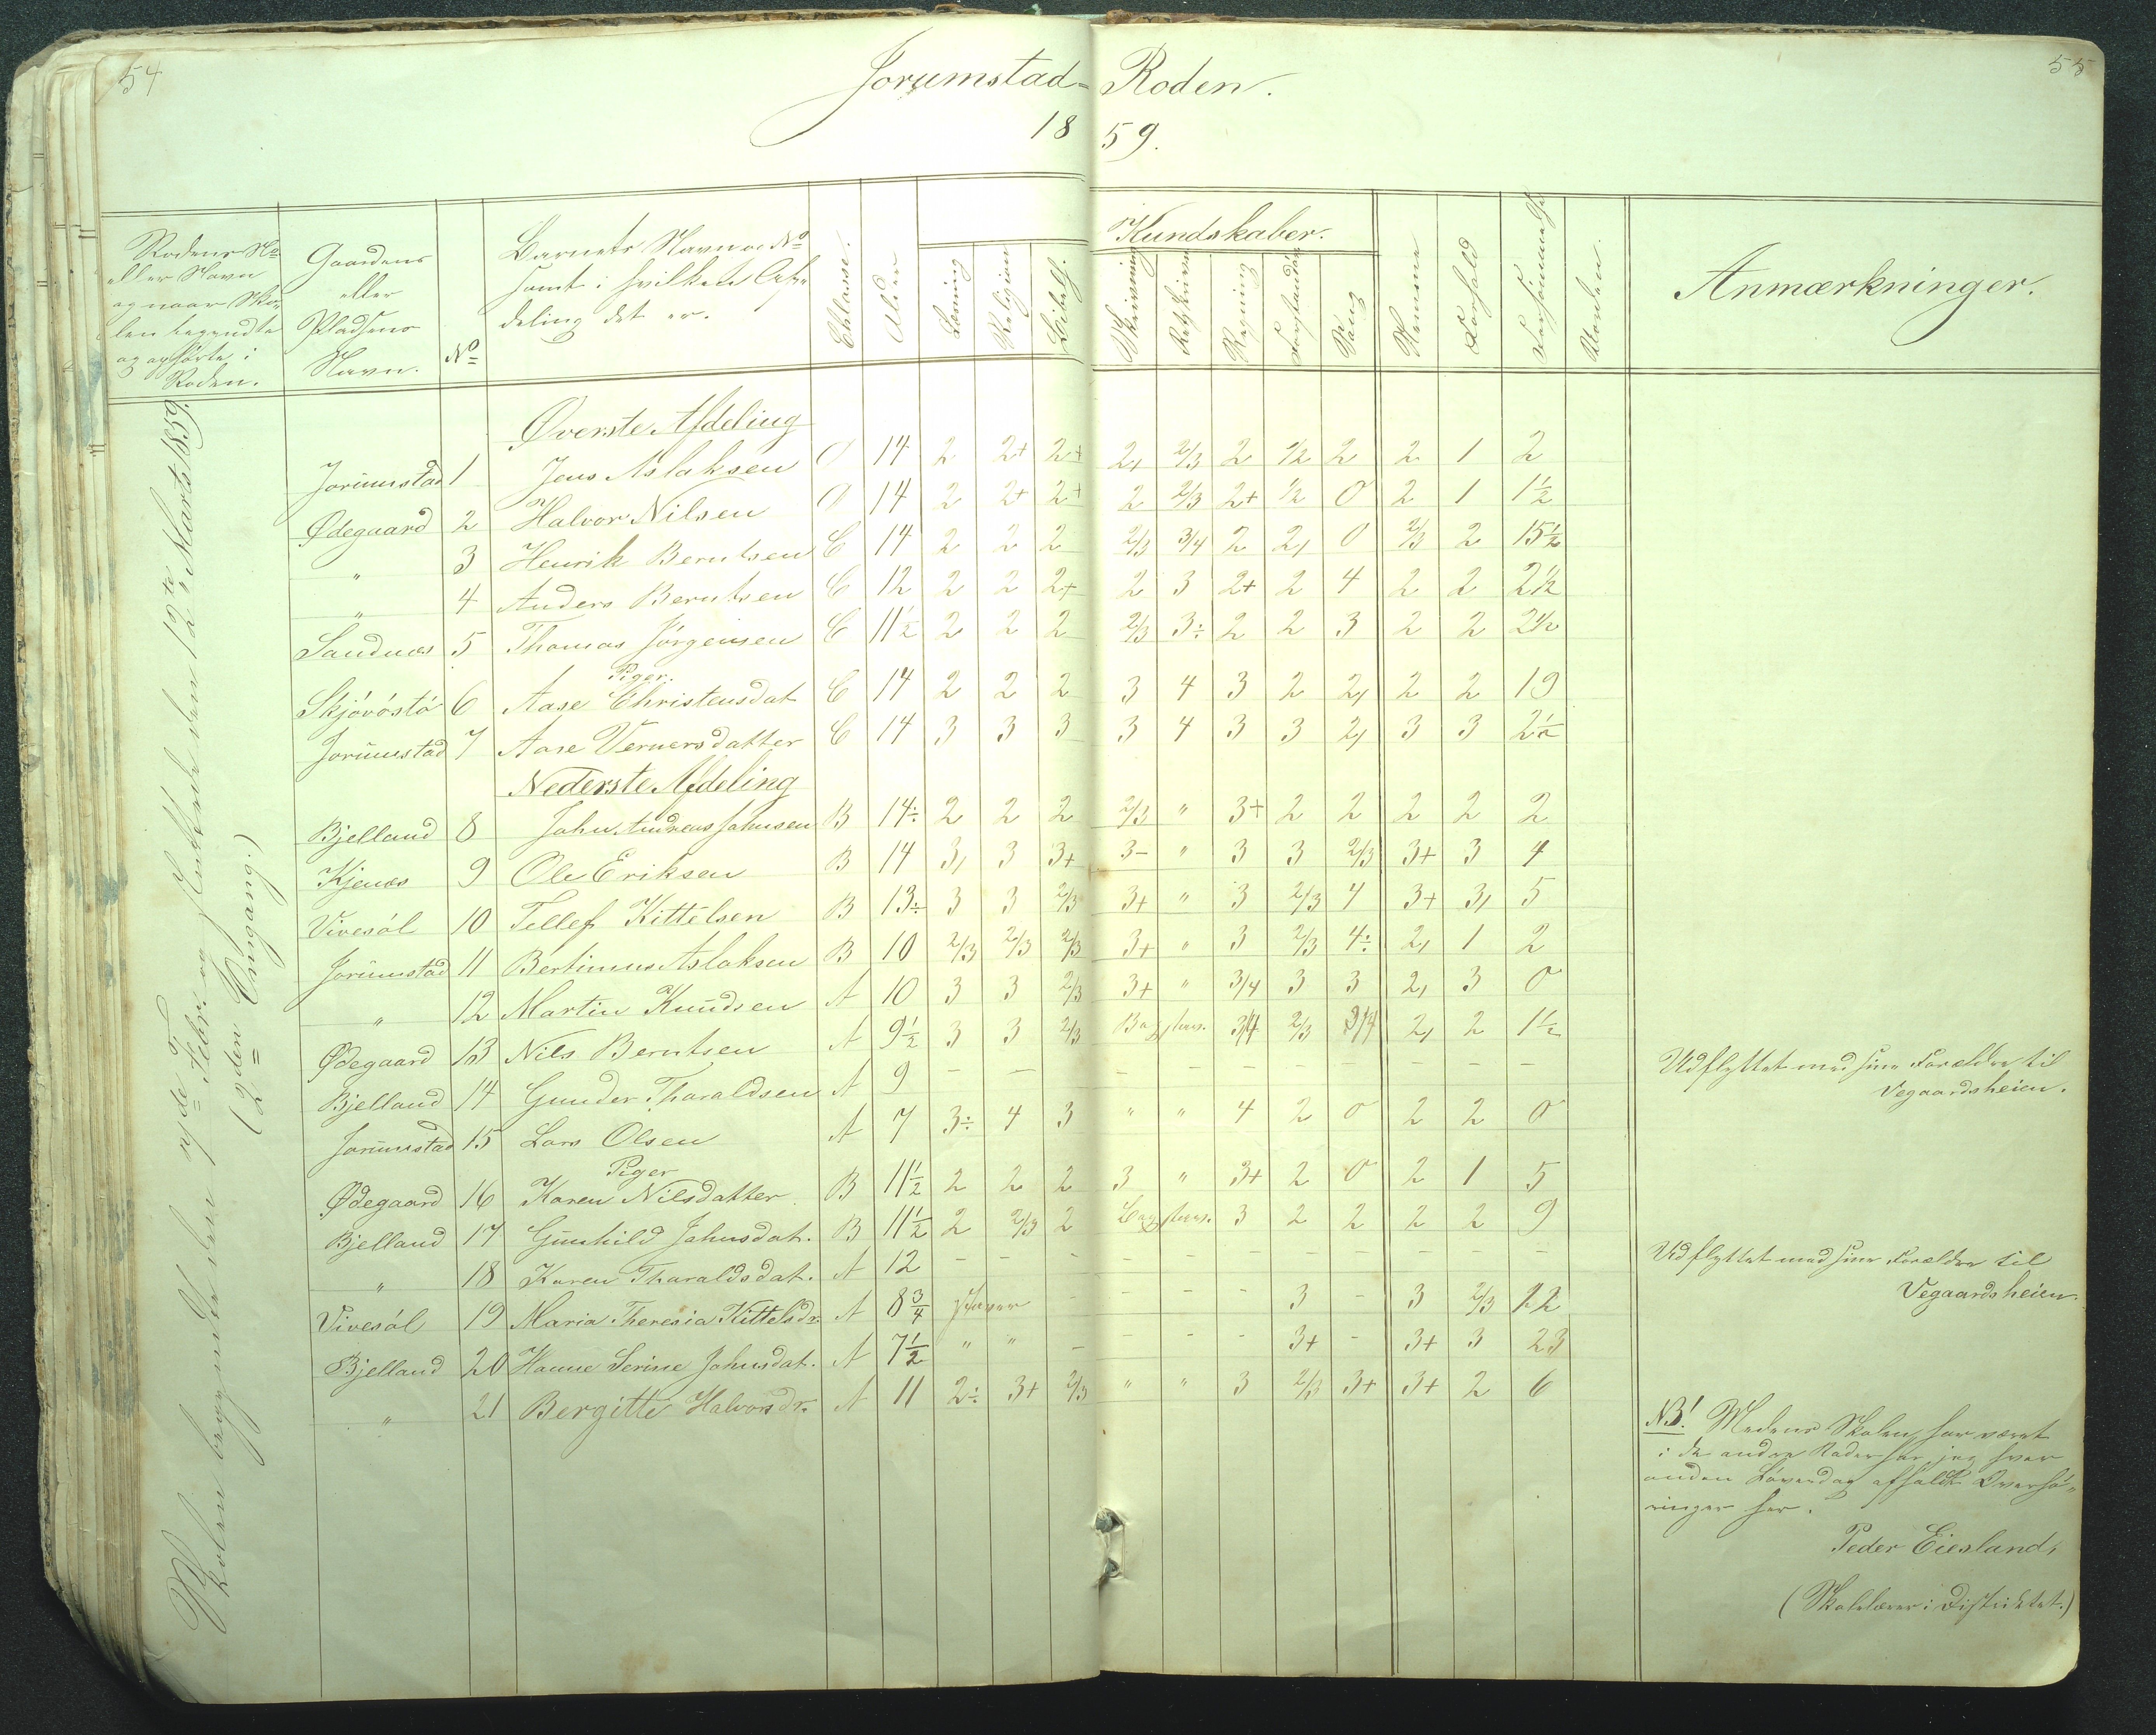 54
55
Jorumstad- Roden.
18 59.
Rodens No
eller Navn
og naar Sko-
len begyndte
og ophørte i
Roden.
Gaardens
eller
Pladsens
Navn.
No
Barnets Navn og No
samt i hvilken Afde-
deling det er.
Classe.
Alder
Læsning
Religion
Bibelh.
Kundskaber.
Skrivning
Retskrivn
Regning
Forstandsø
Sang
Nemme
Forhold
Forsømmelse
Anmærkninger.
Skolen begyndte den 7de Febr. og sluttede den 12te Marts 1859.
(2den Omgang.)
Øverste Afdeling
Jorumstad 1 Jens Aslaksen O 14 2 2+ 2+ 2, 2/3 2 1/2 2 2 1 2
Ødegaard 2 Halvor Nilsen O 14 2 2+ 2+ 2 2/3 2+ 1/2 0 2 1 1½
" 3 Henrik Berntsen C 14 2 2 2 2/3 3/4 2 2, 0 2/3 2 15½
" 4 Anders Berntsen C 12 2 2 2+ 2 3 2+ 2 4 2 2 2½
Sandnæs 5 Thomas Jørgensen C 11½ 2 2 2 2/3 3÷ 2 2 3 2 2 2½
Piger.
Skjøvøstø 6 Aase Christensdat C 14 2 2 2 3 4 3 2 2, 2 2 19
Jorumstad 7 Aase Vernersdatter C 14 3 3 3 3 4 3 3 2, 3 3 2½
Nederste Afdeling
Bjelland 8 John Andreas Johnsen B 14÷ 2 2 2 2/3 " 3+ 2 2 2 2 2
Kjenæs 9 Ole Eriksen B 14 3, 3 3+ 3- " 3 3 2/3 3+ 3 4
Vivesøl 10 Tellef Kittelsen B 13÷ 3 3 2/3 3+ " 3 2/3 4 3+ 3, 5
Jorumstad 11 Bertinus Aslaksen B 10 2/3 2/3 2/3 3+ " 3 2/3 4÷ 2, 1 2
" 12 Martin Knudsen A 10 3 3 2/3 3+ " 3/4 3 3 2, 3 0
Ødegaard 13 Nils Berntsen A 9½ 3 3 2/3 3/4 2/3 3/4 2, 2 1½
Bjelland 14 Gunder Tharaldsen A 9 - - - - - - - - - - Udflyttet med sine Forældre til
Vegaardsheien.
Jorumstad 15 Lars Olsen A 7 3÷ 4 3 " " 4 2 0 2 2 0
Piger
Ødegaard 16 Karen Nilsdatter B 11½ 2 2 2 3 " 3+ 2 0 2 1 5
Bjelland 17 Gunhild Johnsdat. B 11½ 2 2/3 2 3 2 2 2 2 9
" 18 Karen Tharaldsdat. A 12 - - - - - - - - - - - Udflyttet med sine Forældre til
Vegaardsheien.
Vivesøl 19 Maria Theresia Kittelsdr A 8¾ staver - - - - 3 - 3 2/3 22
Bjelland 20 Hanne Serine Johnsdat. A 7½ " " - - - - 3+ - 3+ 3 23
" 21 Bergitte Halvorsdr. A 11 2÷ 3+ 2/3 " " 3 2/3 3+ 3+ 2 6
NB! Medens Skolen har været
i de andre Roder har jeg hver
anden Løverdag afholdt Overhø-
ringer her.
Peder Eiesland,
(Skolelærer i Distriktet.)